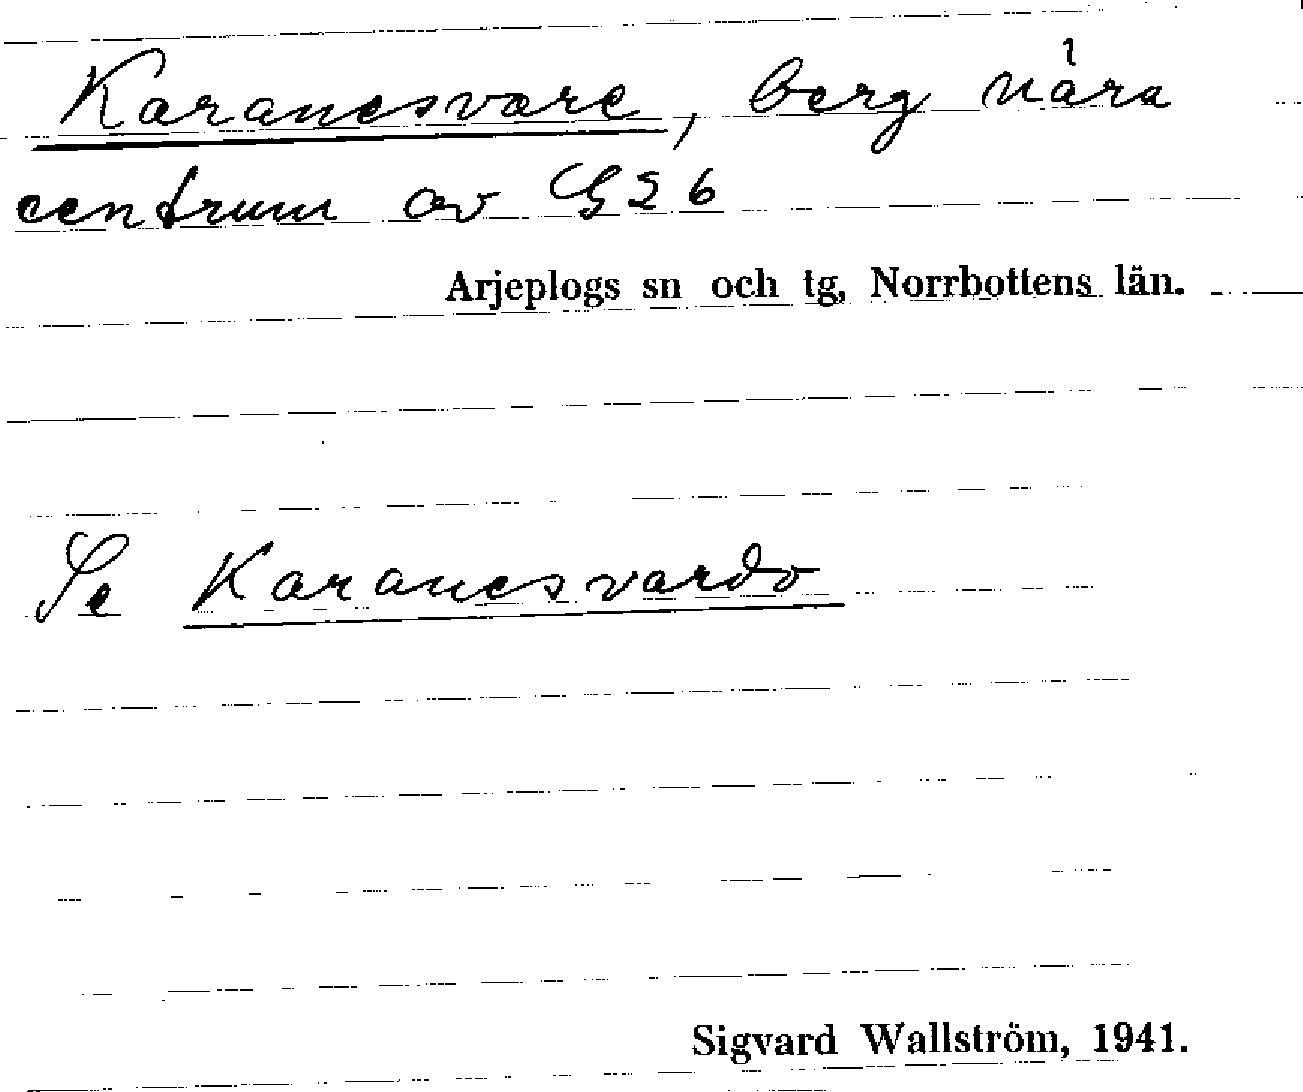 Karanesvare, berg nära
centrum av G26
Arjeplogs sn och tg, Norrbottens län.
Se Karanesvardo
Sigvard Wallström, 1941.